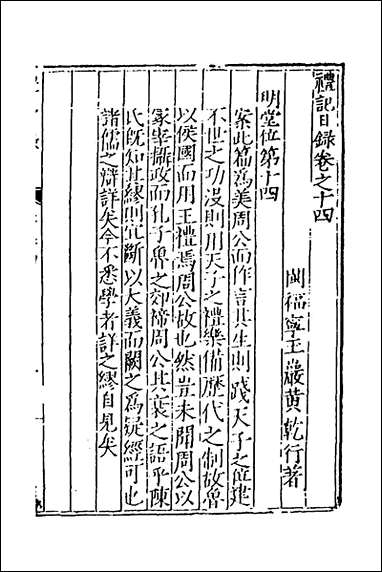 禮記日録卷之十四
閩福寧玉巖黄乾行著
明堂位第十四
案此篇為美周公而作言其生則踐天子之位建
不世之功沒則用天子之禮樂備歷代之制故魯
以侯國而用王禮焉周公故也然豈未聞周公以
冢宰攝政而孔子魯之郊禘周公其衰之語乎陳
氏既知其繆則宜斷以大義而闕之為疑經可也
諸儒之辯詳矣今不悉學者詳之繆自見矣